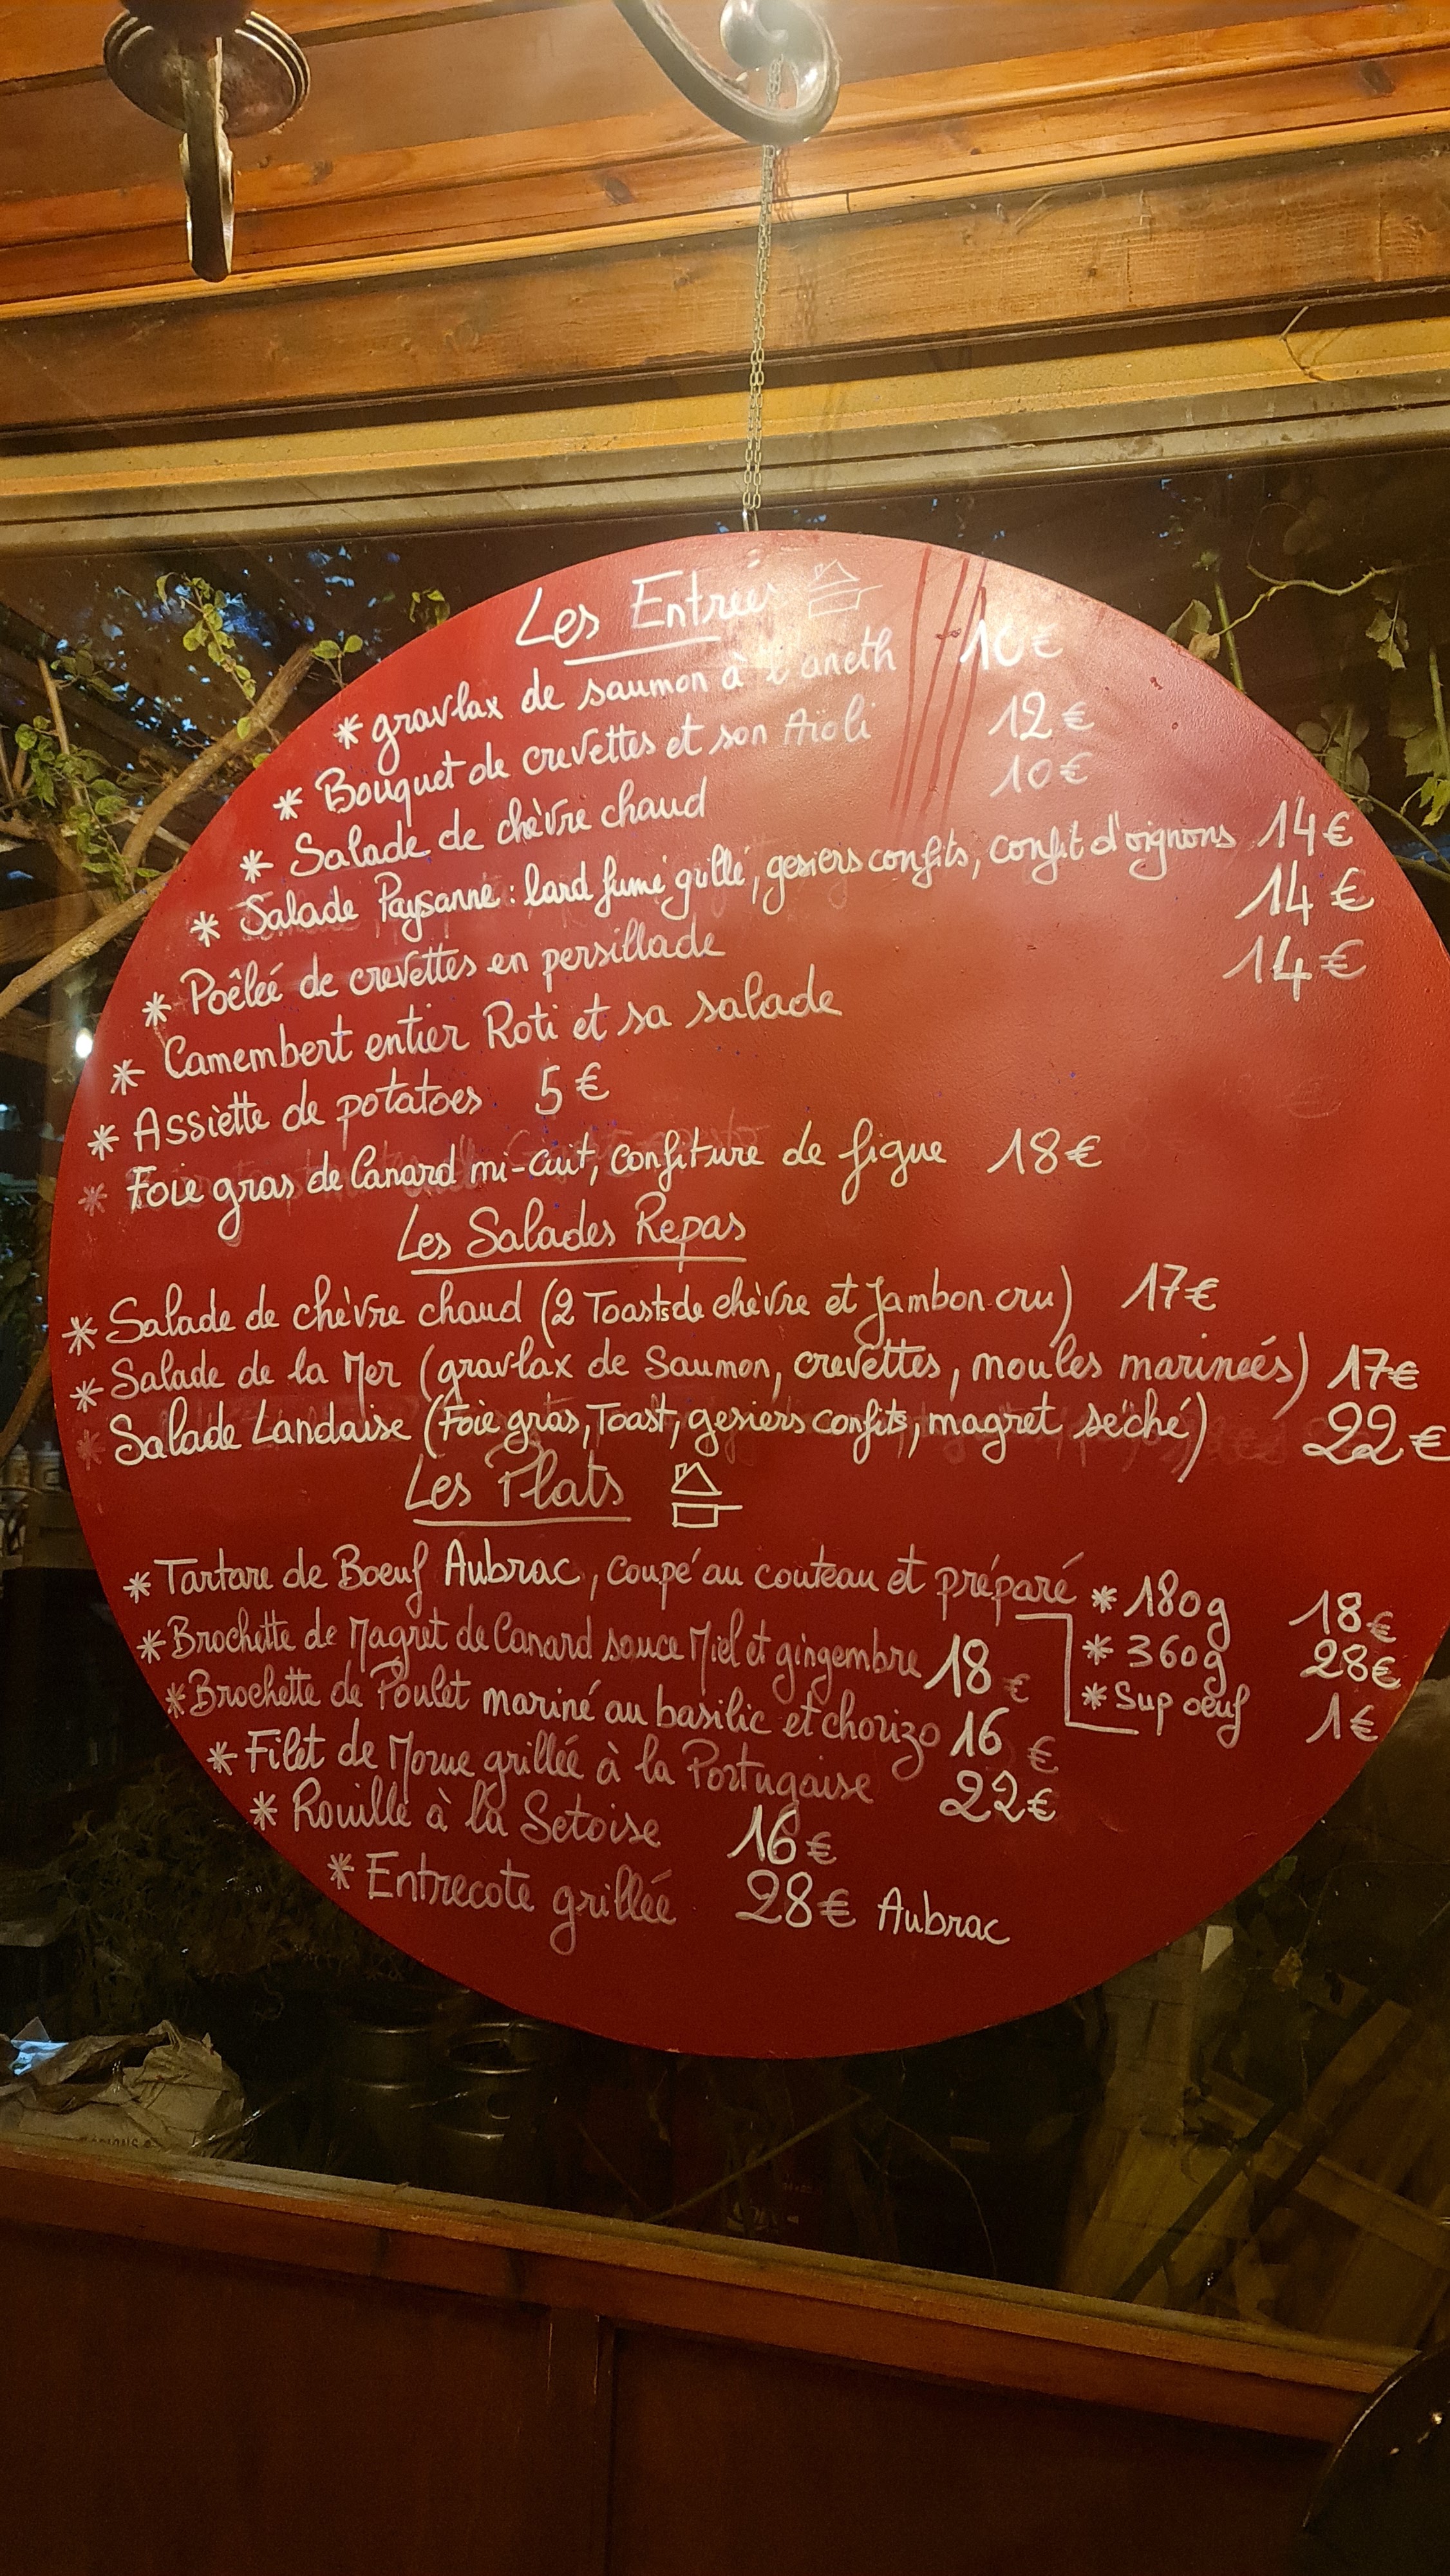 Les Entrées
* gravlax de saumon à l'aneth 10€
* Bouquet de crevettes et son Aïoli 12€
* Salade de chèvre chaud 10€
* Salade Paysanne : lard fumé grillé, gesiers confits, confit d'oignons 14€
* Poêleé de crevettes en persillade 14€
* Camembert entier Roti et sa salade 14€
* Assiette de potatoes 5€
* Foie gras de Canard mi-cuit, confiture de figue 18€
Les Salades Repas
* Salade de chèvre chaud (2 Toasts de chèvre et Jambon cru) 17€
* Salade de la Mer (gravlax de Saumon, crevettes, moules marineés) 17€
* Salade Landaise (Foie gras, Toast, gesiers confits, magret séché) 22€
Les Plats
* Tartare de Boeuf Aubrac, coupé au couteau et préparé * 180g 18€
* 360g 28€
* Sup oeuf 1€
* Brochette de Magret de Canard sauce Miel et gingembre 18€
* Brochette de Poulet mariné au basilic et chorizo 16€
* Filet de Morue grillée à la Portugaise 22€
* Rouille à la Setoise 16€
* Entrecote grillée 28€ Aubrac